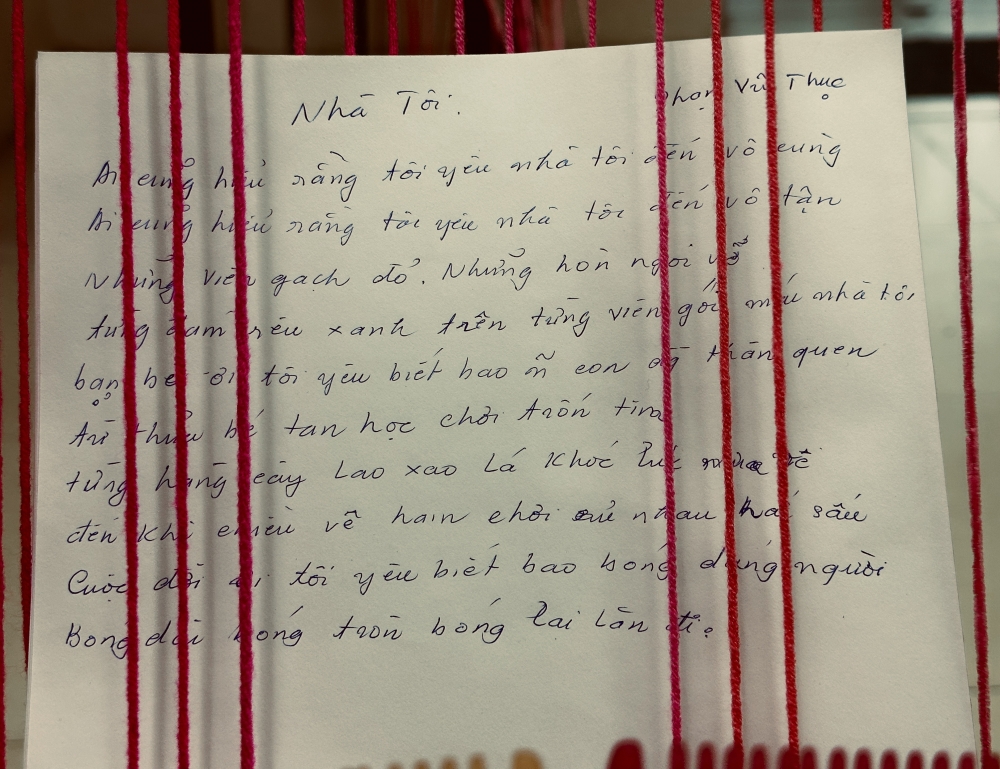 Nhà Tôi.
Phan Vũ Thục
Ai cũng hiểu rằng tôi yêu nhà tôi đến vô cùng
Ai cũng hiểu rằng tôi yêu nhà tôi đến vô tận
Những viên gạch đỏ. Những hòn ngói vỡ
từng đám rêu xanh trên từng viên gối nhà tôi
bạn bè ơi tôi yêu biết bao con thân quen
Từ thủa bé tan học chơi trốn tìm
từng hàng cây Lao xao Lá khóc lúc mùa về
đến khi chiều về chơi rủ nhau hái sấu
Cuộc đời ơi tôi yêu biết bao bóng dáng người
Bóng dài bóng tròn bóng lại Lần đi.